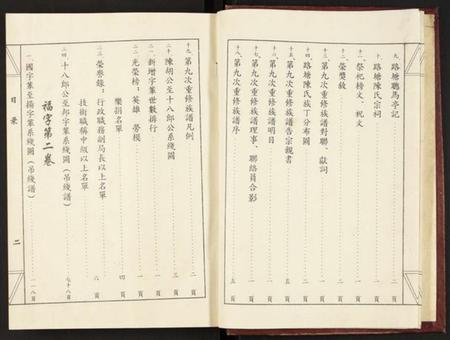 九、路塘驄馬亭記……二頁
十、路塘陳氏宗祠……一頁
十一、祭祀榜文、祝文……一頁
十二、榮獎敘……一頁
十三、第九次重修族譜對聯、獻詞
十四、路塘陳氏族丁分布圖……一頁
十五、第九次重修族譜告宗親書……一頁
十六、第九次重修族譜明目
十七、第九次重修族譜理事、聯絡員合影
十八、第九次重修族譜序……五頁
十九、第九次重修族譜凡例……二頁
二十、陳胡公至十八郎公系綫圖……三頁
二一、新增字輩世數排行……一頁
二二、光榮榜：英雄 勞模……一頁
樂捐名單……四頁
二三、榮譽錄：行政職務副局長以上名單
技術職稱中級以上名單……六頁
二四、十八郎公至邦字輩系綫圖（吊綫譜）……七十八頁
福字第二卷
一、國字輩至揚字輩系綫圖（吊綫譜）……一一八頁
目录
二